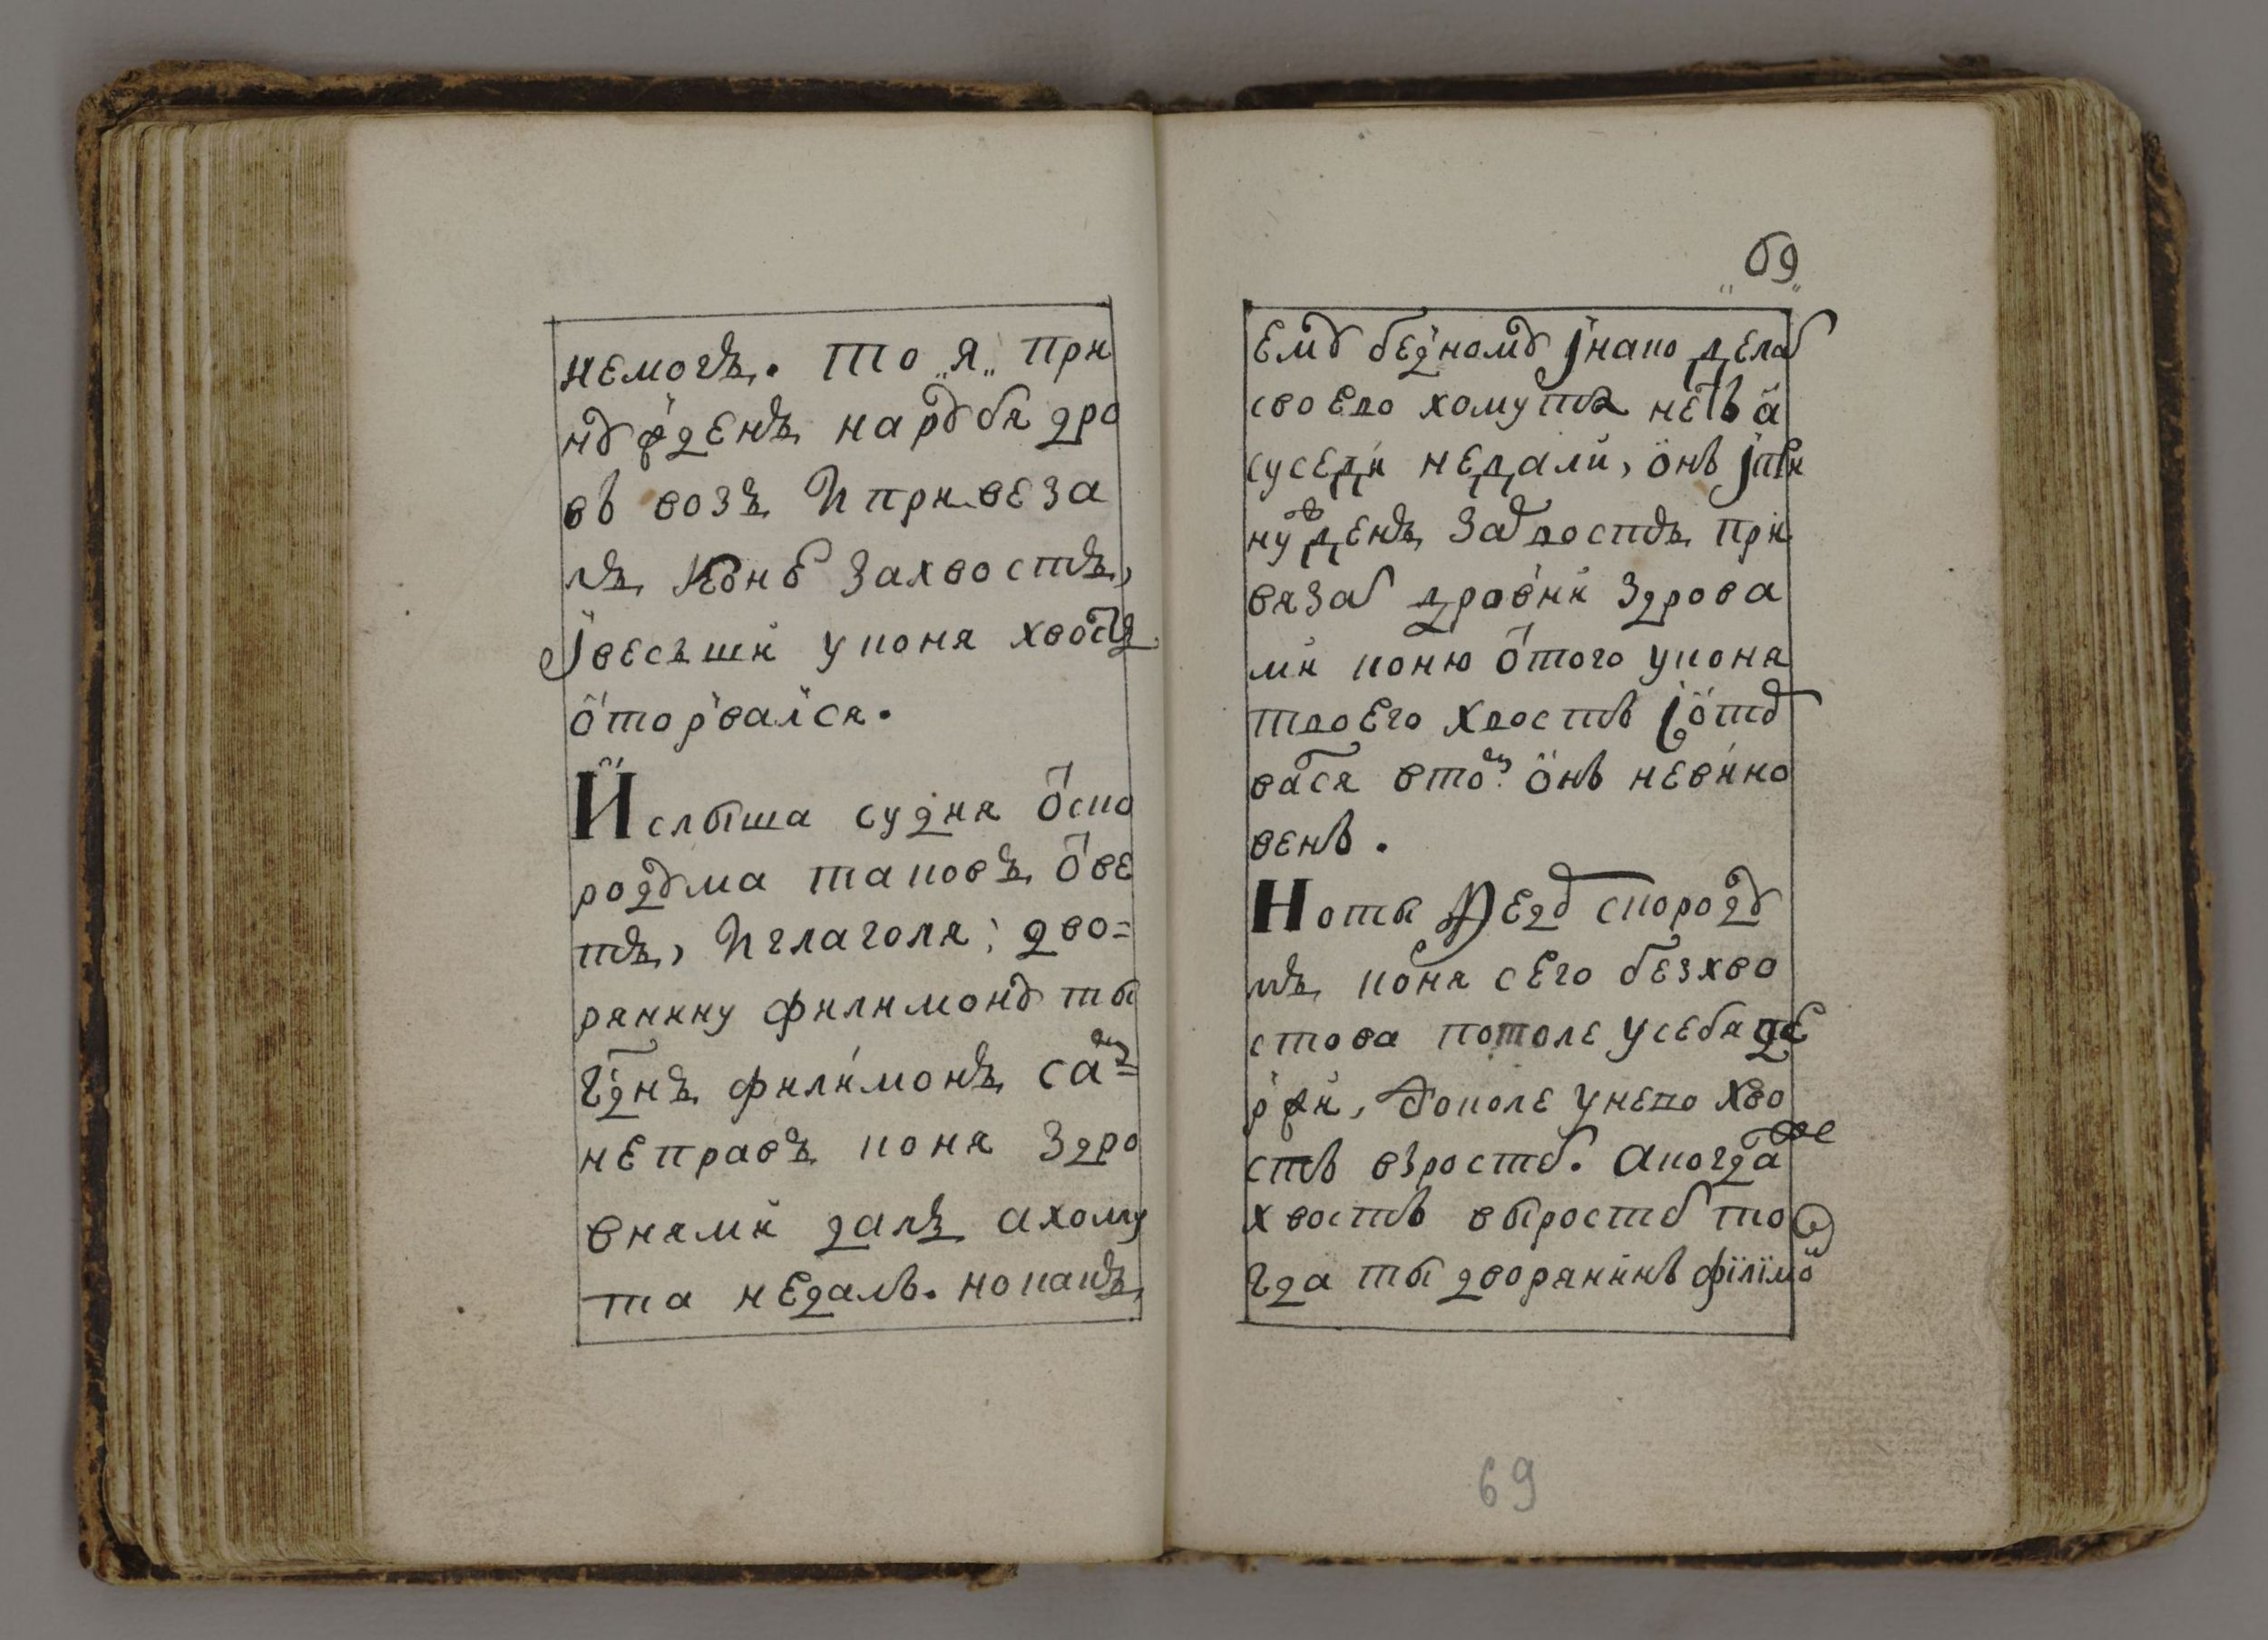 немогъ. То „я„ при
нꙋжденъ нарꙋби дро
въ возъ И привеза
лъ Конѣ Захвостъ,
Јвесьши у коня хвостъ
ѿторвался.
И слыша судия ѿ ско
родꙋма таковъ ѿве
тъ, И глаголя; дво=
рянину филимонꙋ ты
Гднъ филимонъ самъ=
неправъ коня Здро
внями далъ ахому
та недалъ. но какъ
69
Емꙋ бедномꙋ јнако делаѣ
своего хомута нетъ а
суседи недали, онъ јпри
нужденъ Захвостъ при
вязаѣ дровни здрова
ми коню ѿтого укона
твоего хвостъ јоторꙋ
вался втомъ онъ невино
венъ.
Но ты Ведꙋ скородꙋ
мъ коня сего безхво
стова потоле усебя де
ржи, доколе унего хво
стъ взростѣ. А когда же
хвостъ выростѣ то
гда ты дворянинъ філімо
69